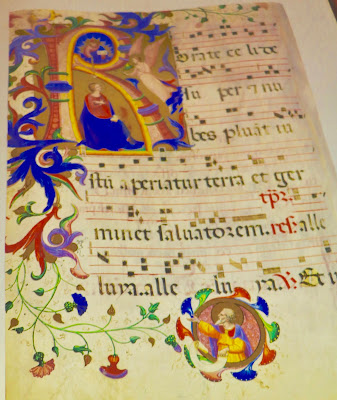 Rorate ce li de
su per ⁊ nu
bes pluāt iu
stū aperiatur terra et ger
minet saluatorem. alle
luya. alle lu ya.